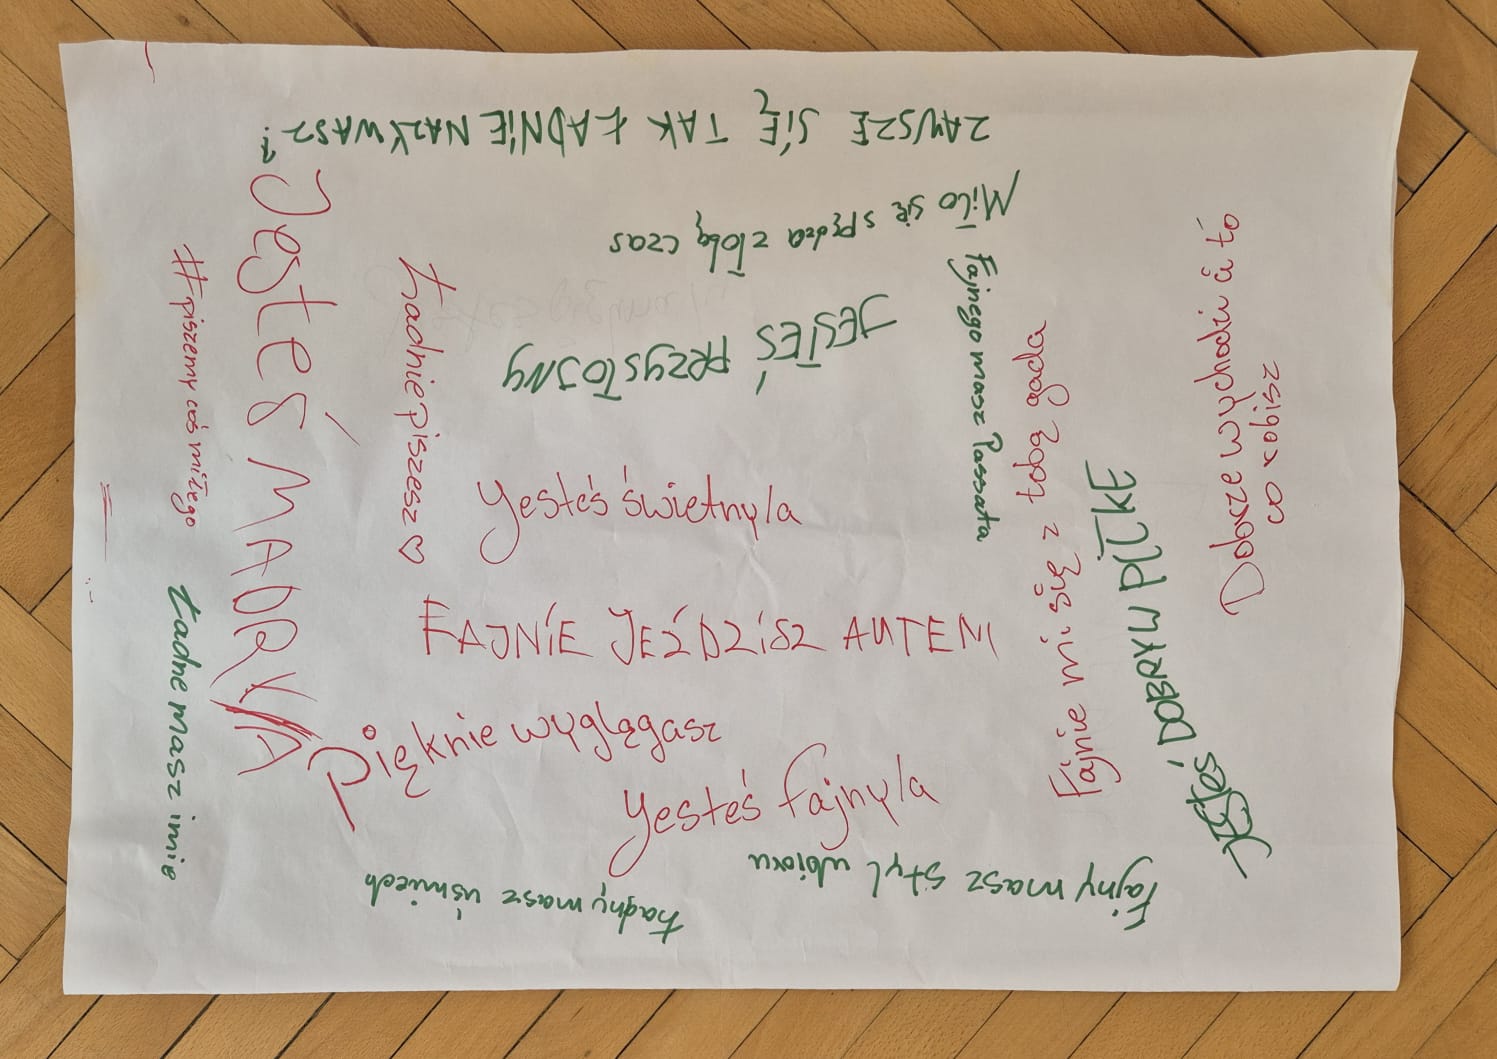 ZAWSZE SIĘ TAK ŁADNIE NAZYWASZ?
Miło się spędza z Tobą czas
JESTEŚ PRZYSTOJNY
#piszemy coś miłego
Jesteś MĄDRY/A
Ładnie piszesz ♡
Fajnego masz Passata
Yesteś świetny/a
FAJNIE JEŹDZISZ AUTEM
Pięknie wyglągasz
Yesteś fajny/a
Fajnie mi się z tobą gada
JESTEŚ DOBRYM PIL
Dobrze wychodzi ci to
co robisz
Ładne masz imię
Ładny masz uśmiech
Fajny masz styl ubioru